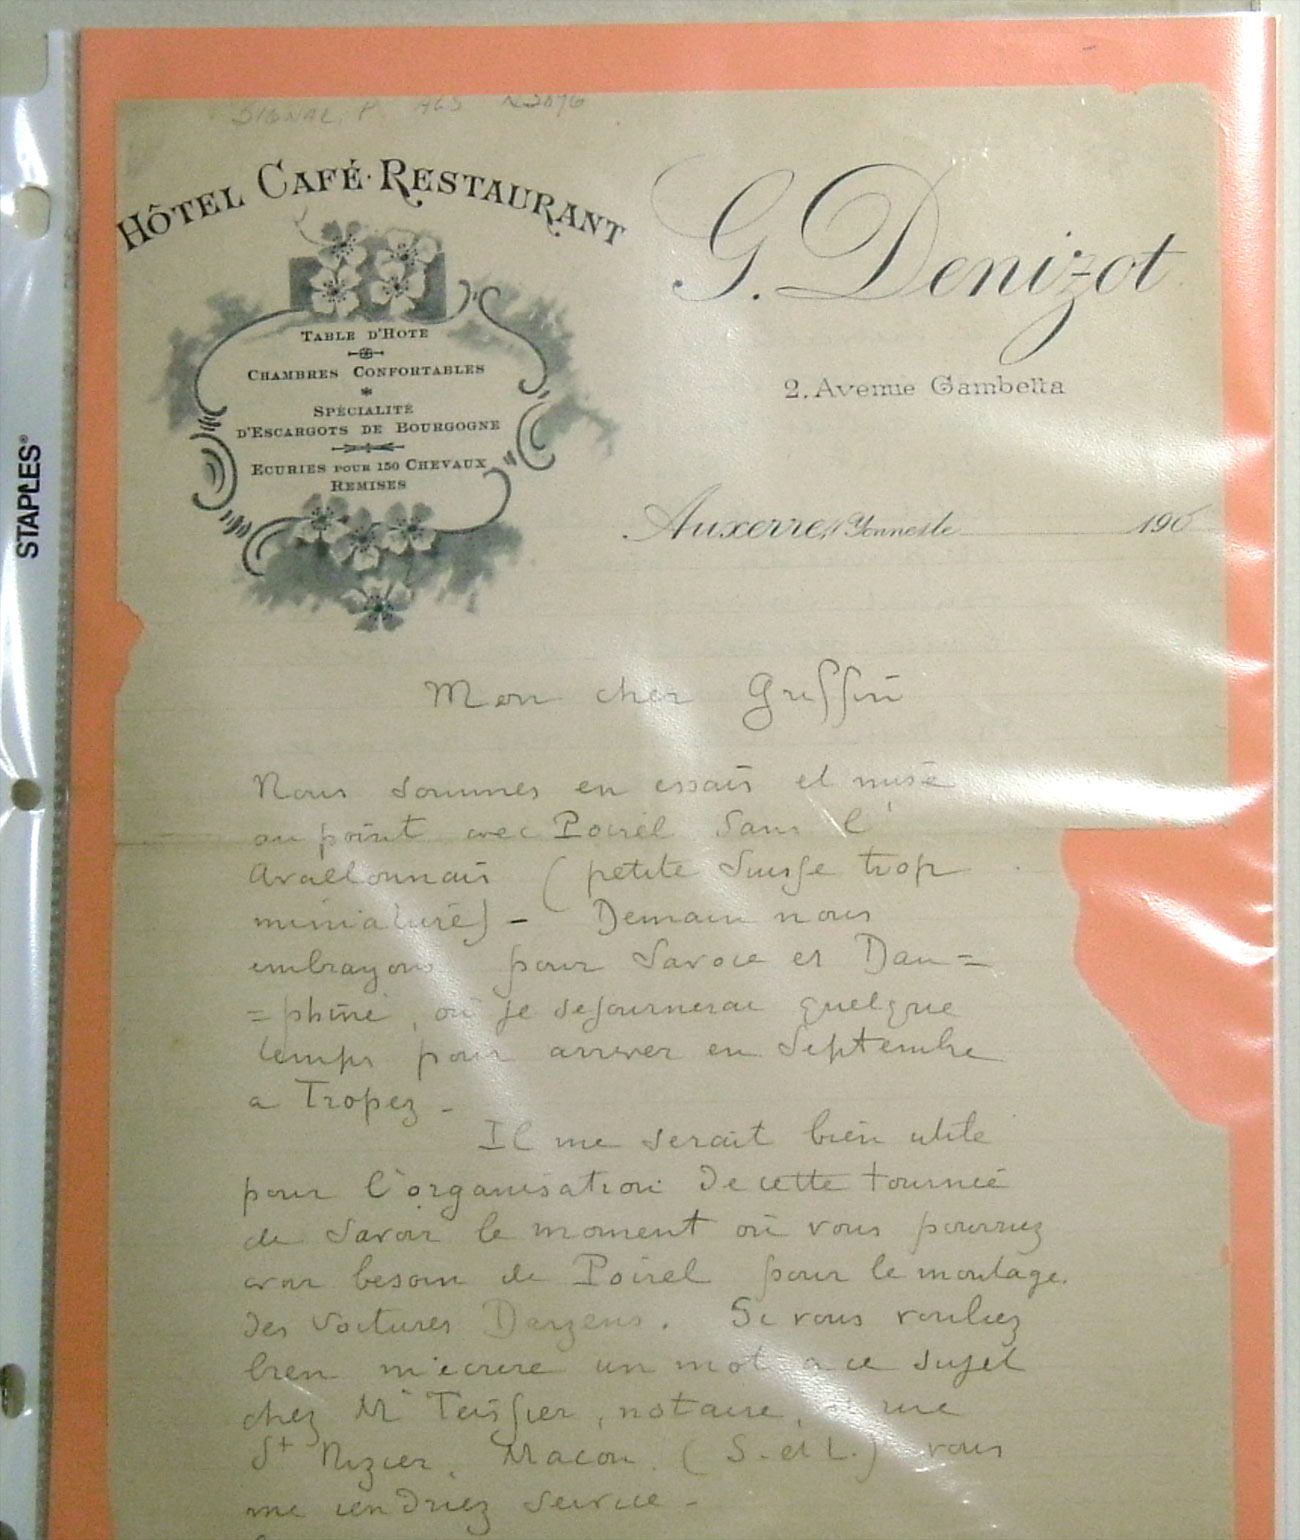 SIGNAC, P. ALS
HÔTEL CAFÉ · RESTAURANT
G. Denizot
TABLE D'HOTE
CHAMBRES CONFORTABLES
SPÉCIALITÉ
D'ESCARGOTS DE BOURGOGNE
ECURIES POUR 150 CHEVAUX
REMISES
2. Avenue Gambetta
Auxerre, (Yonne) le 190
STAPLES®
Mon cher Griffin
Nous sommes en essais et mise
au point avec Poirel dans l'
Avallonnais (petite Suisse trop
miniature) - Demain nous
embrayons pour Savoie et Dau=
=phiné, où je sejournerai quelque
temps pour arriver en Septembre
a Tropez -
Il me serait bien utile
pour l'organisation de cette tournée
de savoir le moment où vous pourriez
avoir besoin de Poirel pour le montage
des voitures Darzens. Si vous vouliez
bien m'écrire un mot a ce sujet
chez Mr Teissier, notaire, rue
St Nizier, Macon (S. et L.) vous
me rendriez service -